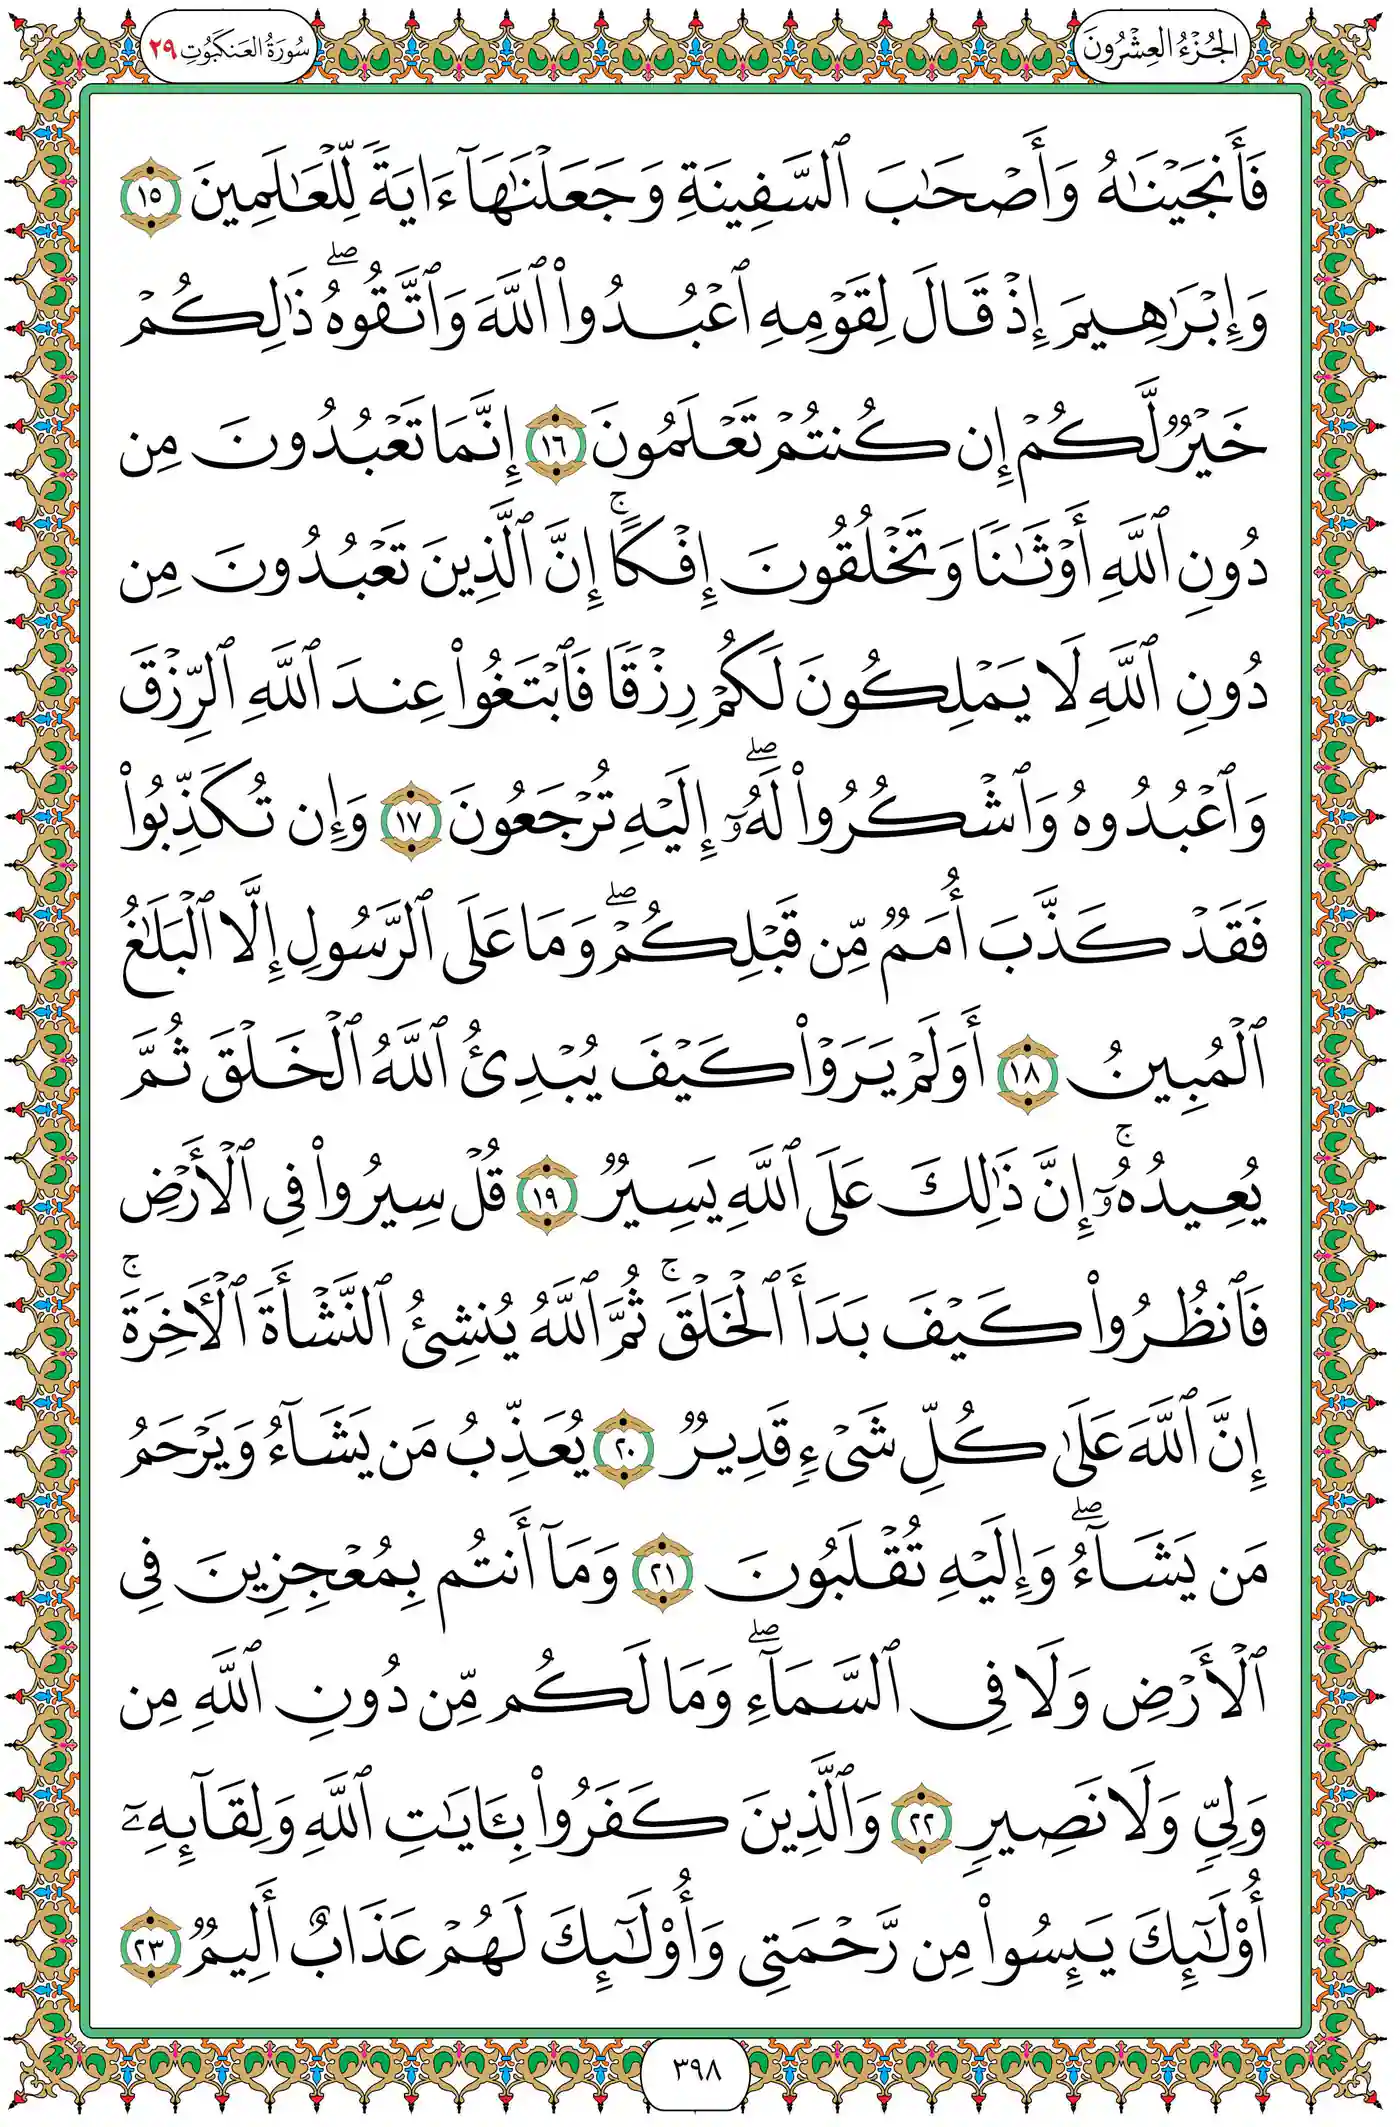 الجُزْءُ العِشْرُونَ
سُورَةُ العَنكَبُوتِ ٢٩
فَأَنجَيْنَـٰهُ وَأَصْحَـٰبَ ٱلسَّفِينَةِ وَجَعَلْنَـٰهَآ ءَايَةً لِّلْعَـٰلَمِينَ ١٥
وَإِبْرَٰهِيمَ إِذْ قَالَ لِقَوْمِهِ ٱعْبُدُوا۟ ٱللَّهَ وَٱتَّقُوهُ ۖ ذَٰلِكُمْ
خَيْرٌ لَّكُمْ إِن كُنتُمْ تَعْلَمُونَ ١٦ إِنَّمَا تَعْبُدُونَ مِن
دُونِ ٱللَّهِ أَوْثَـٰنًا وَتَخْلُقُونَ إِفْكًا ۚ إِنَّ ٱلَّذِينَ تَعْبُدُونَ مِن
دُونِ ٱللَّهِ لَا يَمْلِكُونَ لَكُمْ رِزْقًا فَٱبْتَغُوا۟ عِندَ ٱللَّهِ ٱلرِّزْقَ
وَٱعْبُدُوهُ وَٱشْكُرُوا۟ لَهُۥٓ ۖ إِلَيْهِ تُرْجَعُونَ ١٧ وَإِن تُكَذِّبُوا۟
فَقَدْ كَذَّبَ أُمَمٌ مِّن قَبْلِكُمْ ۖ وَمَا عَلَى ٱلرَّسُولِ إِلَّا ٱلْبَلَـٰغُ
ٱلْمُبِينُ ١٨ أَوَلَمْ يَرَوْا۟ كَيْفَ يُبْدِئُ ٱللَّهُ ٱلْخَلْقَ ثُمَّ
يُعِيدُهُۥٓ ۚ إِنَّ ذَٰلِكَ عَلَى ٱللَّهِ يَسِيرٌ ١٩ قُلْ سِيرُوا۟ فِى ٱلْأَرْضِ
فَٱنظُرُوا۟ كَيْفَ بَدَأَ ٱلْخَلْقَ ۚ ثُمَّ ٱللَّهُ يُنشِئُ ٱلنَّشْأَةَ ٱلْـَٔاخِرَةَ ۚ
إِنَّ ٱللَّهَ عَلَىٰ كُلِّ شَىْءٍ قَدِيرٌ ٢٠ يُعَذِّبُ مَن يَشَآءُ وَيَرْحَمُ
مَن يَشَآءُ ۖ وَإِلَيْهِ تُقْلَبُونَ ٢١ وَمَآ أَنتُم بِمُعْجِزِينَ فِى
ٱلْأَرْضِ وَلَا فِى ٱلسَّمَآءِ ۖ وَمَا لَكُم مِّن دُونِ ٱللَّهِ مِن
وَلِىٍّ وَلَا نَصِيرٍ ٢٢ وَٱلَّذِينَ كَفَرُوا۟ بِـَٔايَـٰتِ ٱللَّهِ وَلِقَآئِهِۦٓ
أُو۟لَـٰٓئِكَ يَئِسُوا۟ مِن رَّحْمَتِى وَأُو۟لَـٰٓئِكَ لَهُمْ عَذَابٌ أَلِيمٌ ٢٣
٣٩٨